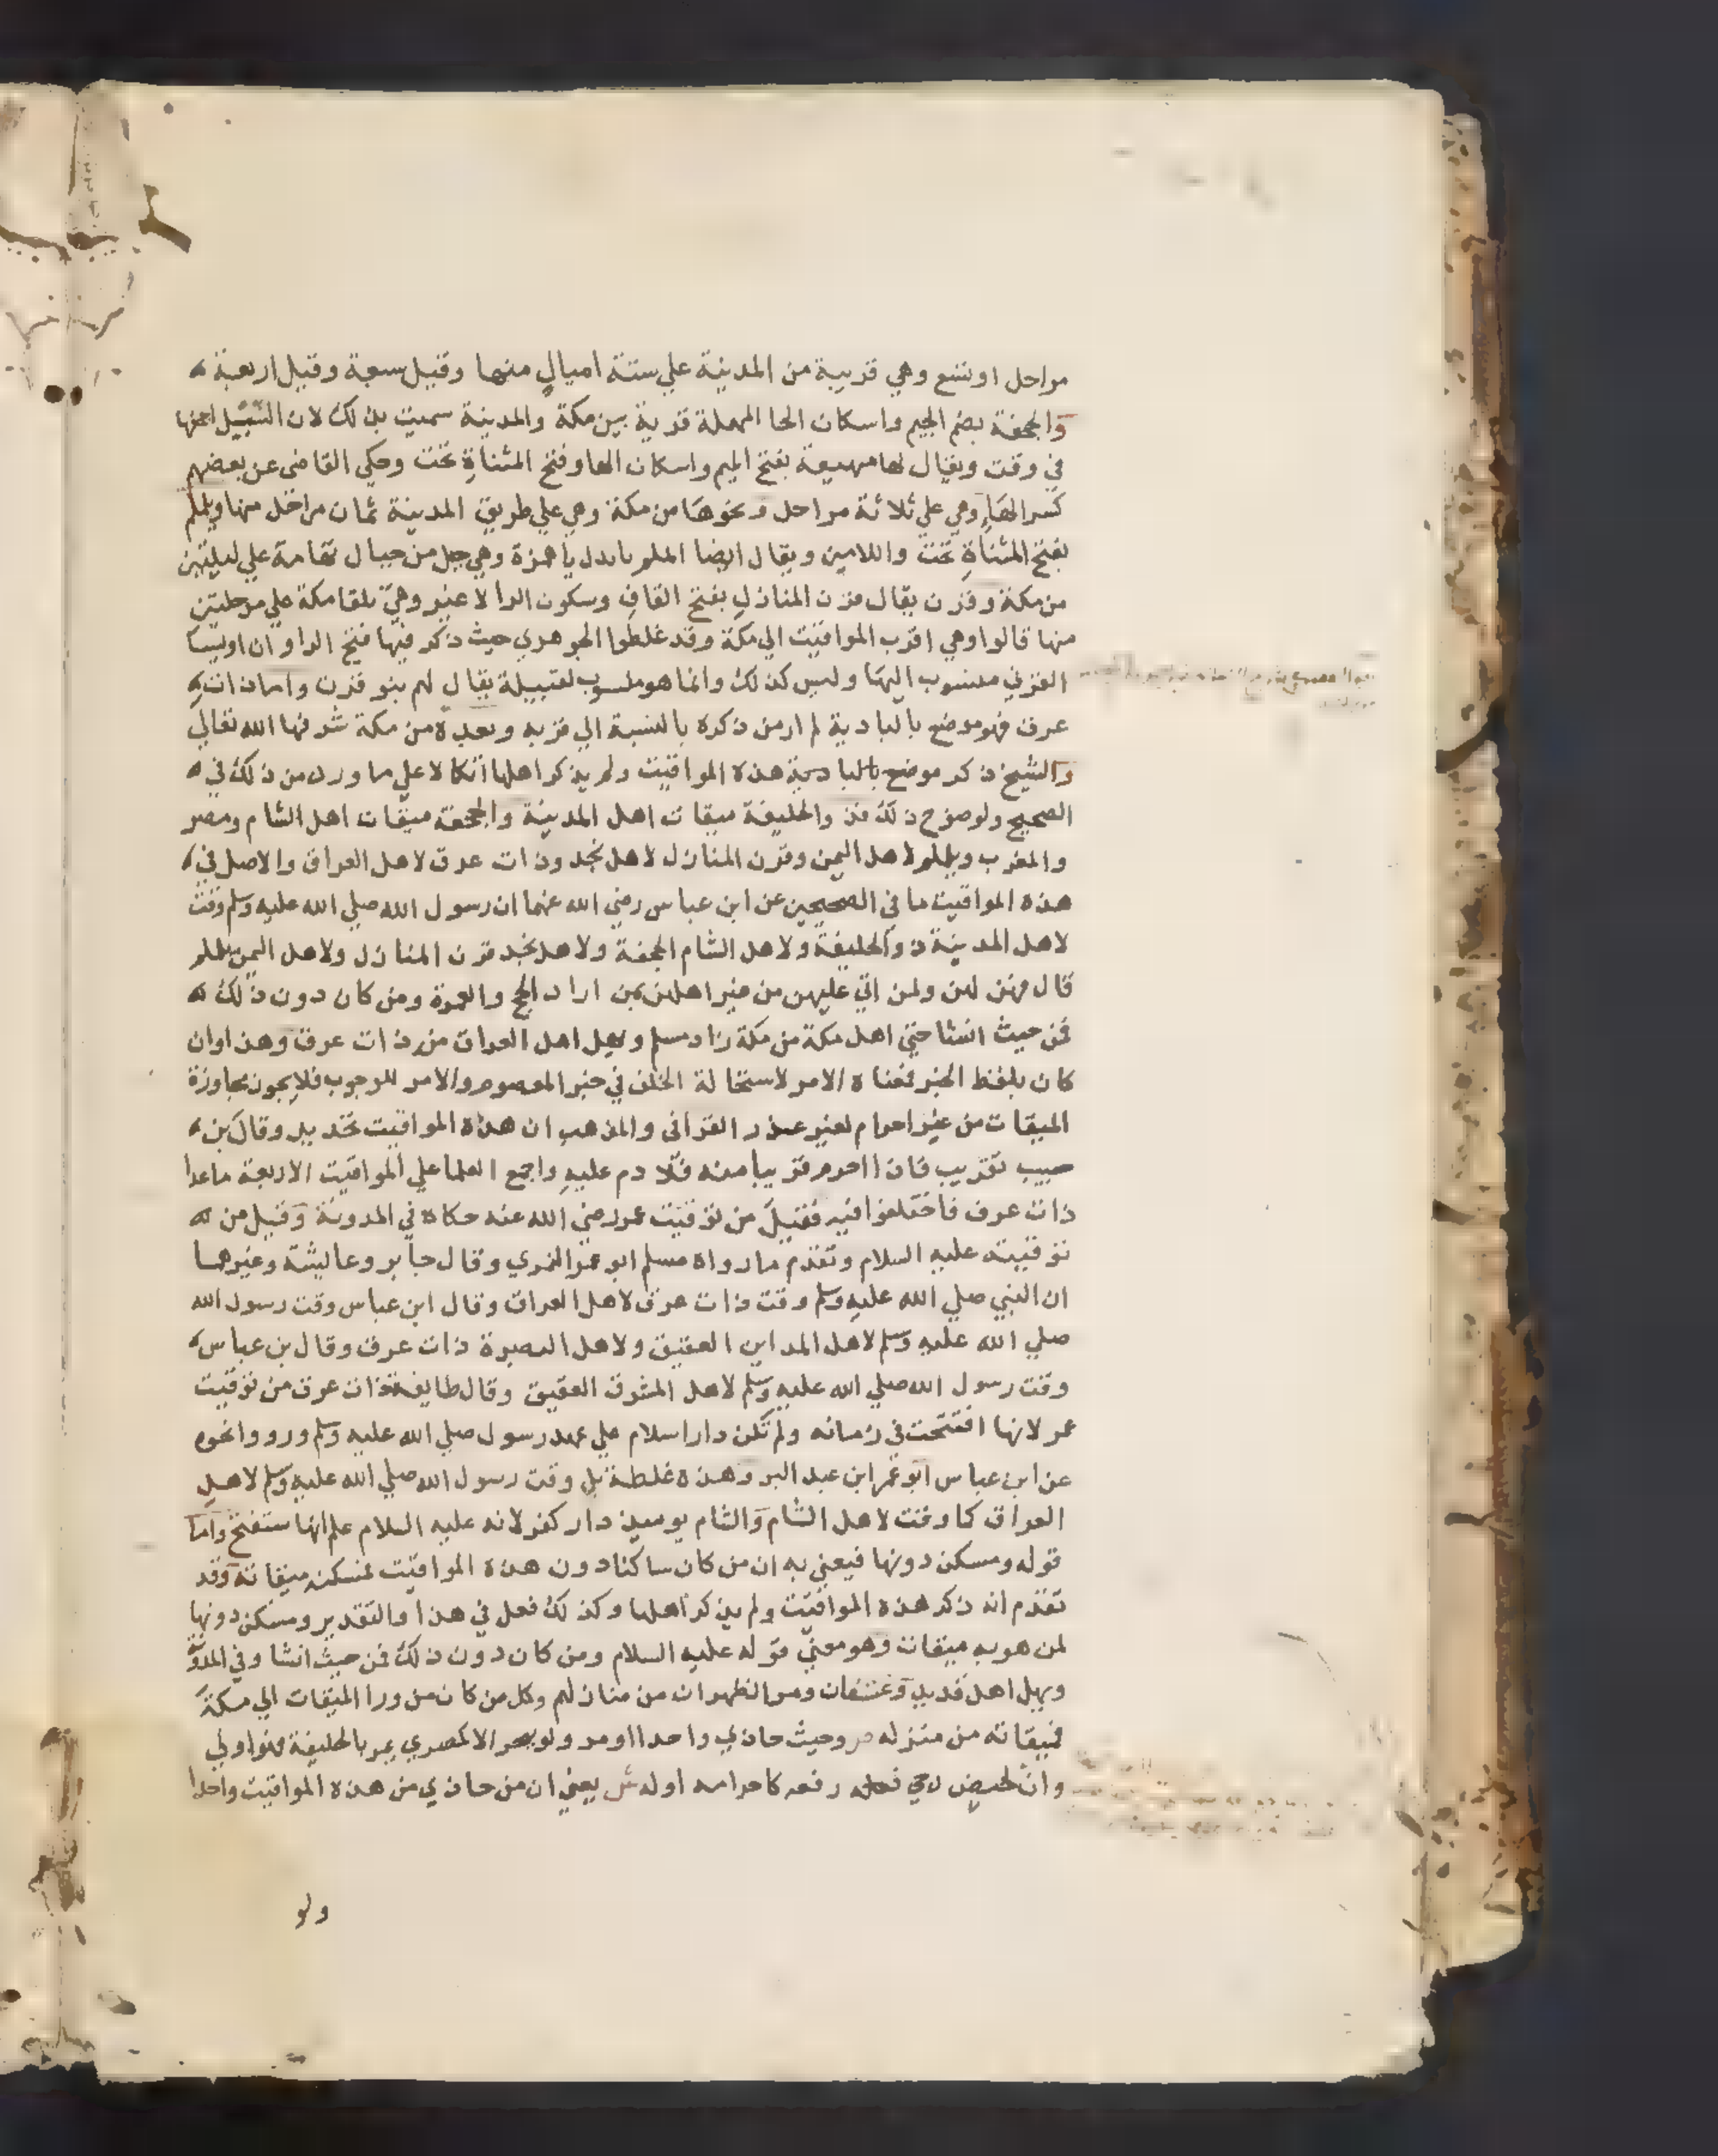 مراحل او تسع وهي قريبة من المدينة علي ستة اميال منها وقيل سبعة وقيل اربعة
والجحفة بضم الجيم واسكان الحا المهملة قرية بين مكة والمدينة سميت بذلك لان السيل اجحفها
في وقت ويقال لها مهيعة بفتح الميم واسكان الها وفتح المثناة تحت وحكي القاضى عن بعضهم
كسر الهاء وهي علي ثلاثة مراحل ونحوها من مكة وهي علي طريق المدينة ثمان مراحل منها ويلملم
بفتح المثناة تحت واللامين ويقال ايضا الملم بابدل يا همزة وهي جبل من جبال تهامة علي ليلتين
من مكة وقرن يقال قرن المنازل بفتح القاف وسكون الرا لا غير وهي تلقا مكة علي مرحلتين
منها قالوا وهي اقرب المواقيت الي مكة وقد غلطوا الجوهري حيث ذكر فيها فتح الرا وان اويسا
القرني منسوب اليها وليس كذلك وانما هو منسوب لقبيلة يقال لهم بنو قرن واما ذات
عرق فهو موضع بالبادية لم ار من ذكره بالنسبة الي قربه وبعده من مكة شرفها الله تعالي
والشيخ ذكر موضع بالبادية هذه المواقيت ولم يذكر اهلها اتكالا علي ما ورد من ذلك في
الصحيح ولوضوح ذلك فذ والحليفة ميقات اهل المدينة والجحفة ميقات اهل الشام ومصر
والمغرب ويلملم لاهل اليمن وقرن المنازل لاهل نجد وذات عرق لاهل العراق والاصل في
هذه المواقيت ما في الصحيحين عن ابن عباس رضي الله عنهما ان رسول الله صلي الله عليه وسلم وقت
لاهل المدينة ذو الحليفة ولاهل الشام الجحفة ولاهل نجد قرن المنازل ولاهل اليمن يلملم
قال فهن لهن ولمن اتي عليهن من غير اهلهن ممن اراد الحج والعمرة ومن كان دون ذلك
فمن حيث انشا حتي اهل مكة من مكة زاد مسلم ويهل اهل العراق من ذات عرق وهذا وان
كان بلفظ الخبر فمعناه الامر لاستحالة الخلف في خبر المعصوم والامر للوجوب فلا يجوز مجاوزة
الميقات من غير احرام لغير عذر القرافى والمذهب ان هذه المواقيت تحديد وقال بن
حبيب تقريب فان احرم قريبا منه فلا دم عليه واجمع العلما علي المواقيت الاربعة ماعدا
ذات عرق فاختلفوا فيه فقيل من توقيت عمر رضي الله عنه حكاه في المدونة وقيل من
توقيته عليه السلام وتقدم ما رواه مسلم ابو عمر النمري وقال جابر وعايشة وغيرهما
ان النبي صلي الله عليه وسلم وقت ذات عرق لاهل العراق وقال ابن عباس وقت رسول الله
صلي الله عليه وسلم لاهل المداين العقيق ولاهل البصرة ذات عرق وقال بن عباس
وقت رسول الله صلي الله عليه وسلم لاهل المشرق العقيق وقال طايفة ذات عرق من توقيت
عمر لانها افتتحت في زمانه ولم تكن دار اسلام علي عهد رسول صلي الله عليه وسلم ورووا نحوه
عن ابن عباس ابو عمر ابن عبد البر وهذه غلطة بل وقت رسول الله صلي الله عليه وسلم لاهل
العراق كما وقت لاهل الشام والشام يوميذ دار كفر لانه عليه السلام علم انها ستفتح واما
قوله ومسكن دونها فيعني به ان من كان ساكنا دون هذه المواقيت فمسكنه ميقاته وقد
تقدم انه ذكر هذه المواقيت ولم يذكر اهلها وكذلك فعل في هذا والتقدير ومسكن دونها
لمن هو به ميقات وهو معني قوله عليه السلام ومن كان دون ذلك فمن حيث انشا وفي المدو
ويهل اهل قديد وعسفان ومر الظهران من منازلهم وكل من كان من ورا الميقات الي مكة
فميقاته من منزله ص وحيث حاذي واحدا او مر ولو ببحر الا كمصري يمر بالحليفة فهو اولي
وان لحيض رجي رفعه كاحرامه اوله ش يعني ان من حاذي من هذه المواقيت واحدا
ولو